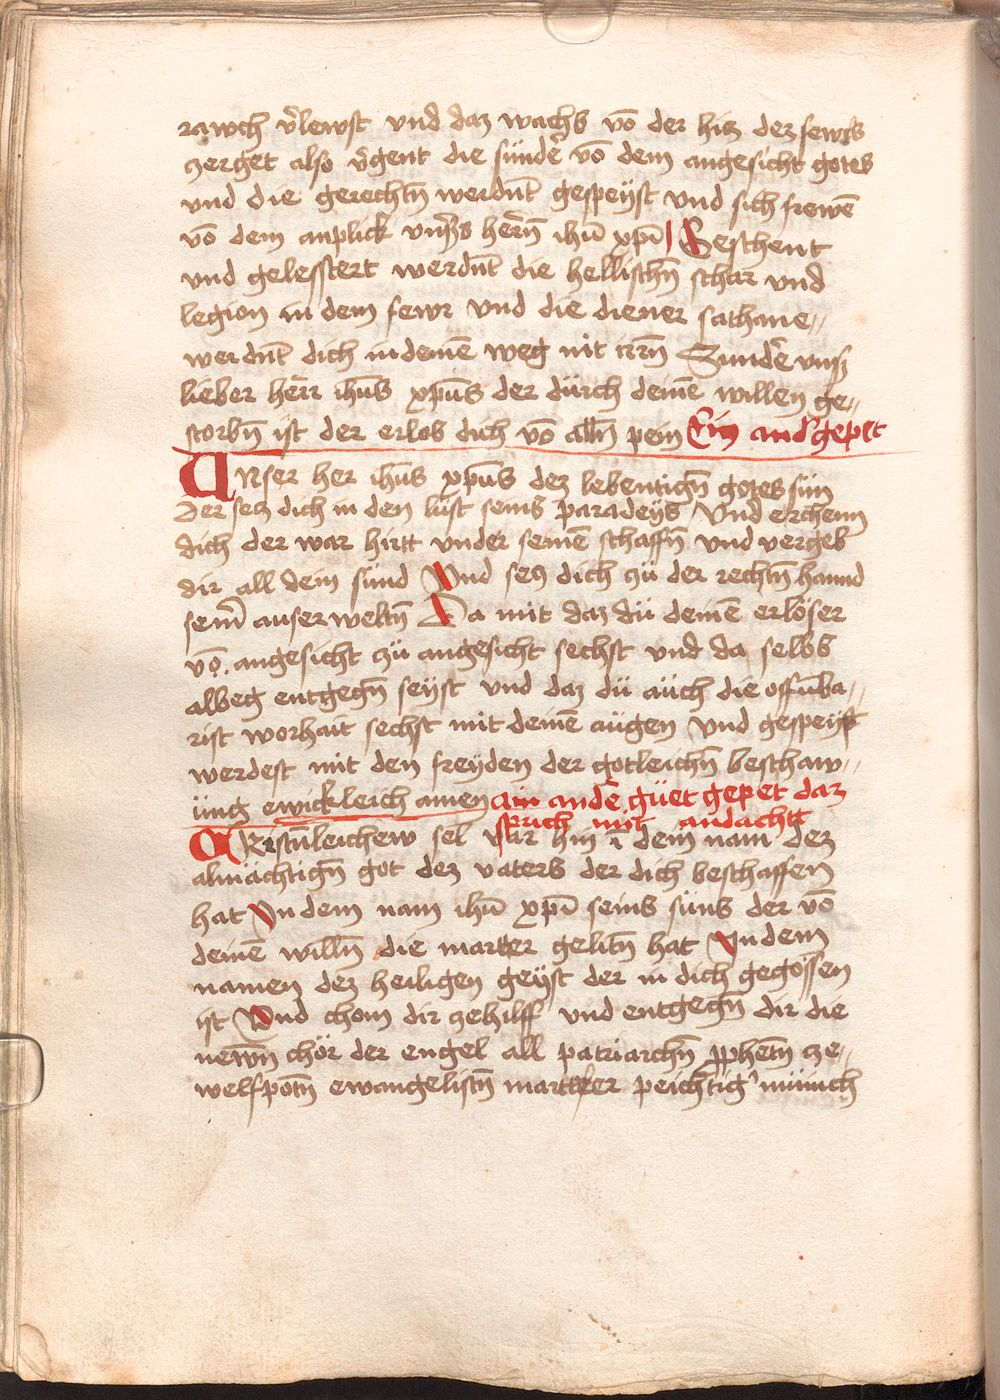 rawch v̄lewst vnd daz wachs vō der hiz dez fewrs
zerget also v̄gent die sünder̄ vō dem angesicht gotes
vnd die gerechtn̄ werdnt̄ gespeyst vnd sich frewē
vō dem anplick vnsers herrn̄ ihū xpī Geschent
vnd gelesstert werdnt̄ die hellischn̄ schar vnd
legion in dem fewr vnd die diener sathane//
werdnt̄ dich in deinē weg nit irrn̄ Sunder̄ vnser
lieber herr ihūs xpūs der dürch deinē willen ge//
storbn̄ ist der erlos dich vō alln̄ pein Ein and̄ gepet
Unser her ihūs xpūs dez lebentign̄ gotes sün
Der sez dich in den lüst seins paradeys Vnd erchenn
dich der war hirtt vnder seinē schaffn̄ vnd vergeb
dir all dein sünd Vnd sez dich zü der rechtn̄ hannd
seinr̄ auserweltn̄ Da mit daz dü deinē erlöser
vō angesicht zü angesicht sechst vnd da selbs
albeg entgegn̄ seyst vnd daz dü aüch die offnb̄a//
rist worhait sechst mit deinē aügen vnd gespeyst
werdest mit den freyden der gotleichn̄ beschaw//
üng ewickleich amen ain ander̄ güet gepet daz
sprich mit andacht
Kristn̄leichew sel var hin ī dem nam dez
almächtign̄ got dez vaters der dich beschaffen
hat In dem nam ihū xpī seins süns der vō
deinē willn̄ die marter gelitn̄ hat In dem
namen dez heiligen geyst der in dich gegossen
ist Vnd chom dir zehilff vnd entgegn̄ dir die
newn̄ chör der engel all patriarchn̄ pphetn̄ ze//
welfpotn̄ ewangelistn̄ martrer peichtig̓ münich